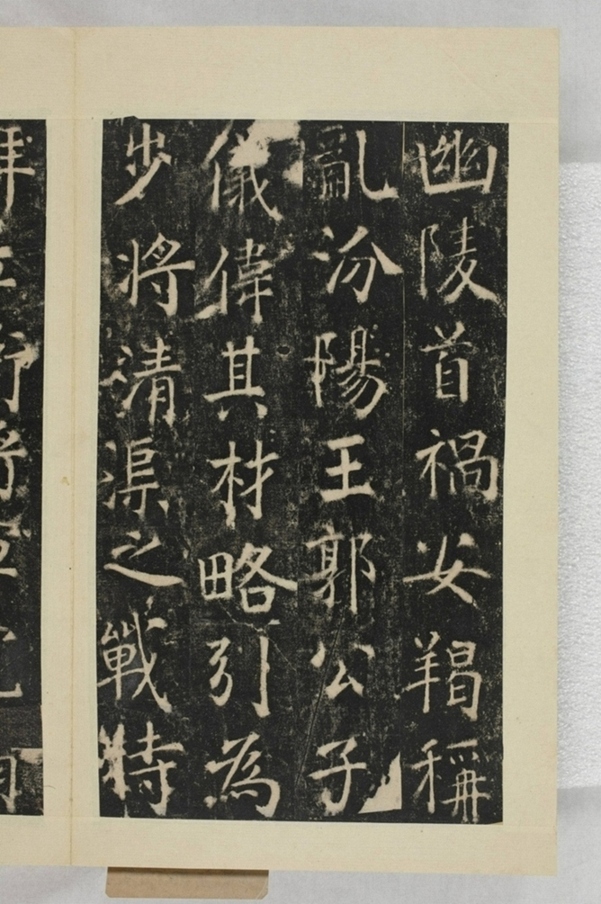 幽陵首禍安羯稱
亂汾陽王郭公子
儀偉其材略引為
步將清渠之戰特